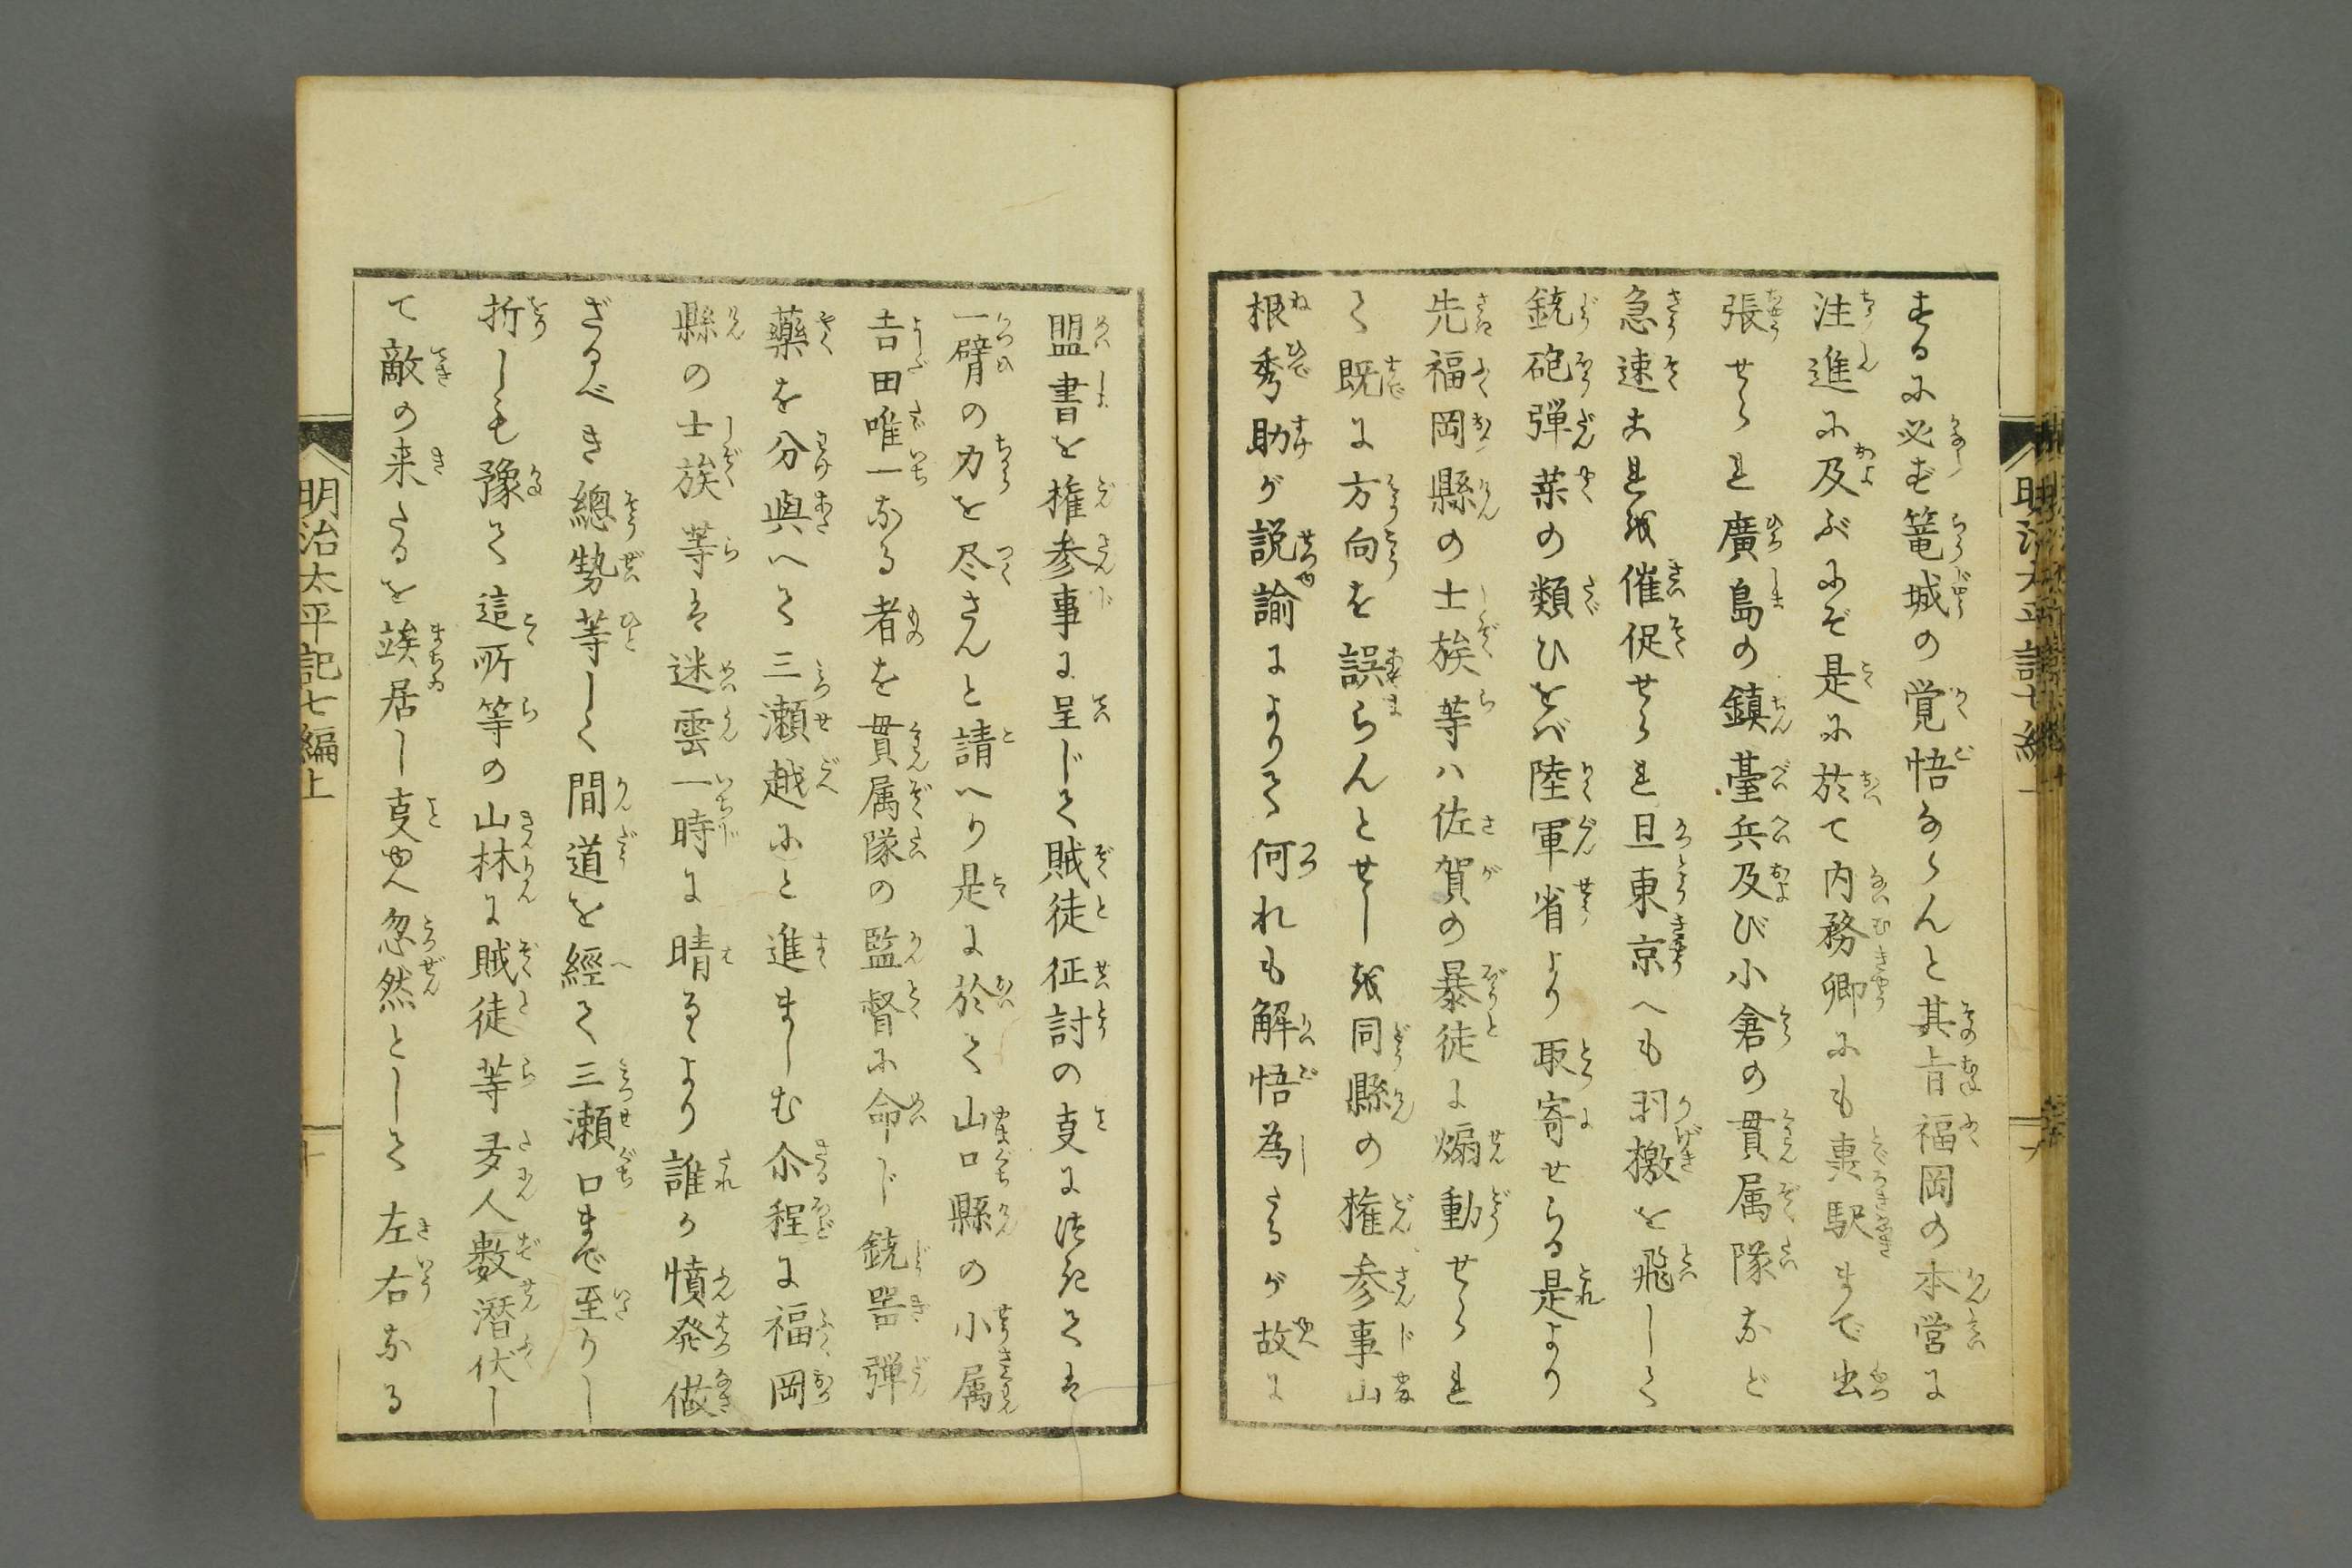 するに必ず篭城の覚悟ならんと其旨福岡の本営に
注進に及ぶにぞ是に於て内務卿にも轟駅まで出
張せられ廣島の鎮臺兵及び小倉の貫属隊など
急速これ越催促せられ且東京へも羽檄を飛しく
銃砲弾薬の類ひをバ陸軍省より取寄せらる是より
先福岡縣の士族等ハ佐賀の暴徒に煽動せられ
て既に方向を誤らんとせし越同縣の権参事山
根秀助が説諭によりて何れも解悟為たるが故に
盟書を権参事に呈じて賊徒征討の事に
一臂の力を尽さんと請へり是に於て山口縣の小属
吉田唯一なる者を貫属隊の監督に命じ銃器弾
藥を分與へて三瀬越にと進ましむ尓程に福岡
縣の士族等は迷雲一時に晴るより誰か憤発做
ざるべき總勢等しく間道を經て三瀬口まで至りし
折しも豫て這所等の山林に賊徒等多人数潜伏し
て敵の来たるを竢居し事ゆへ忽然として左右なる
明治太平記七編上